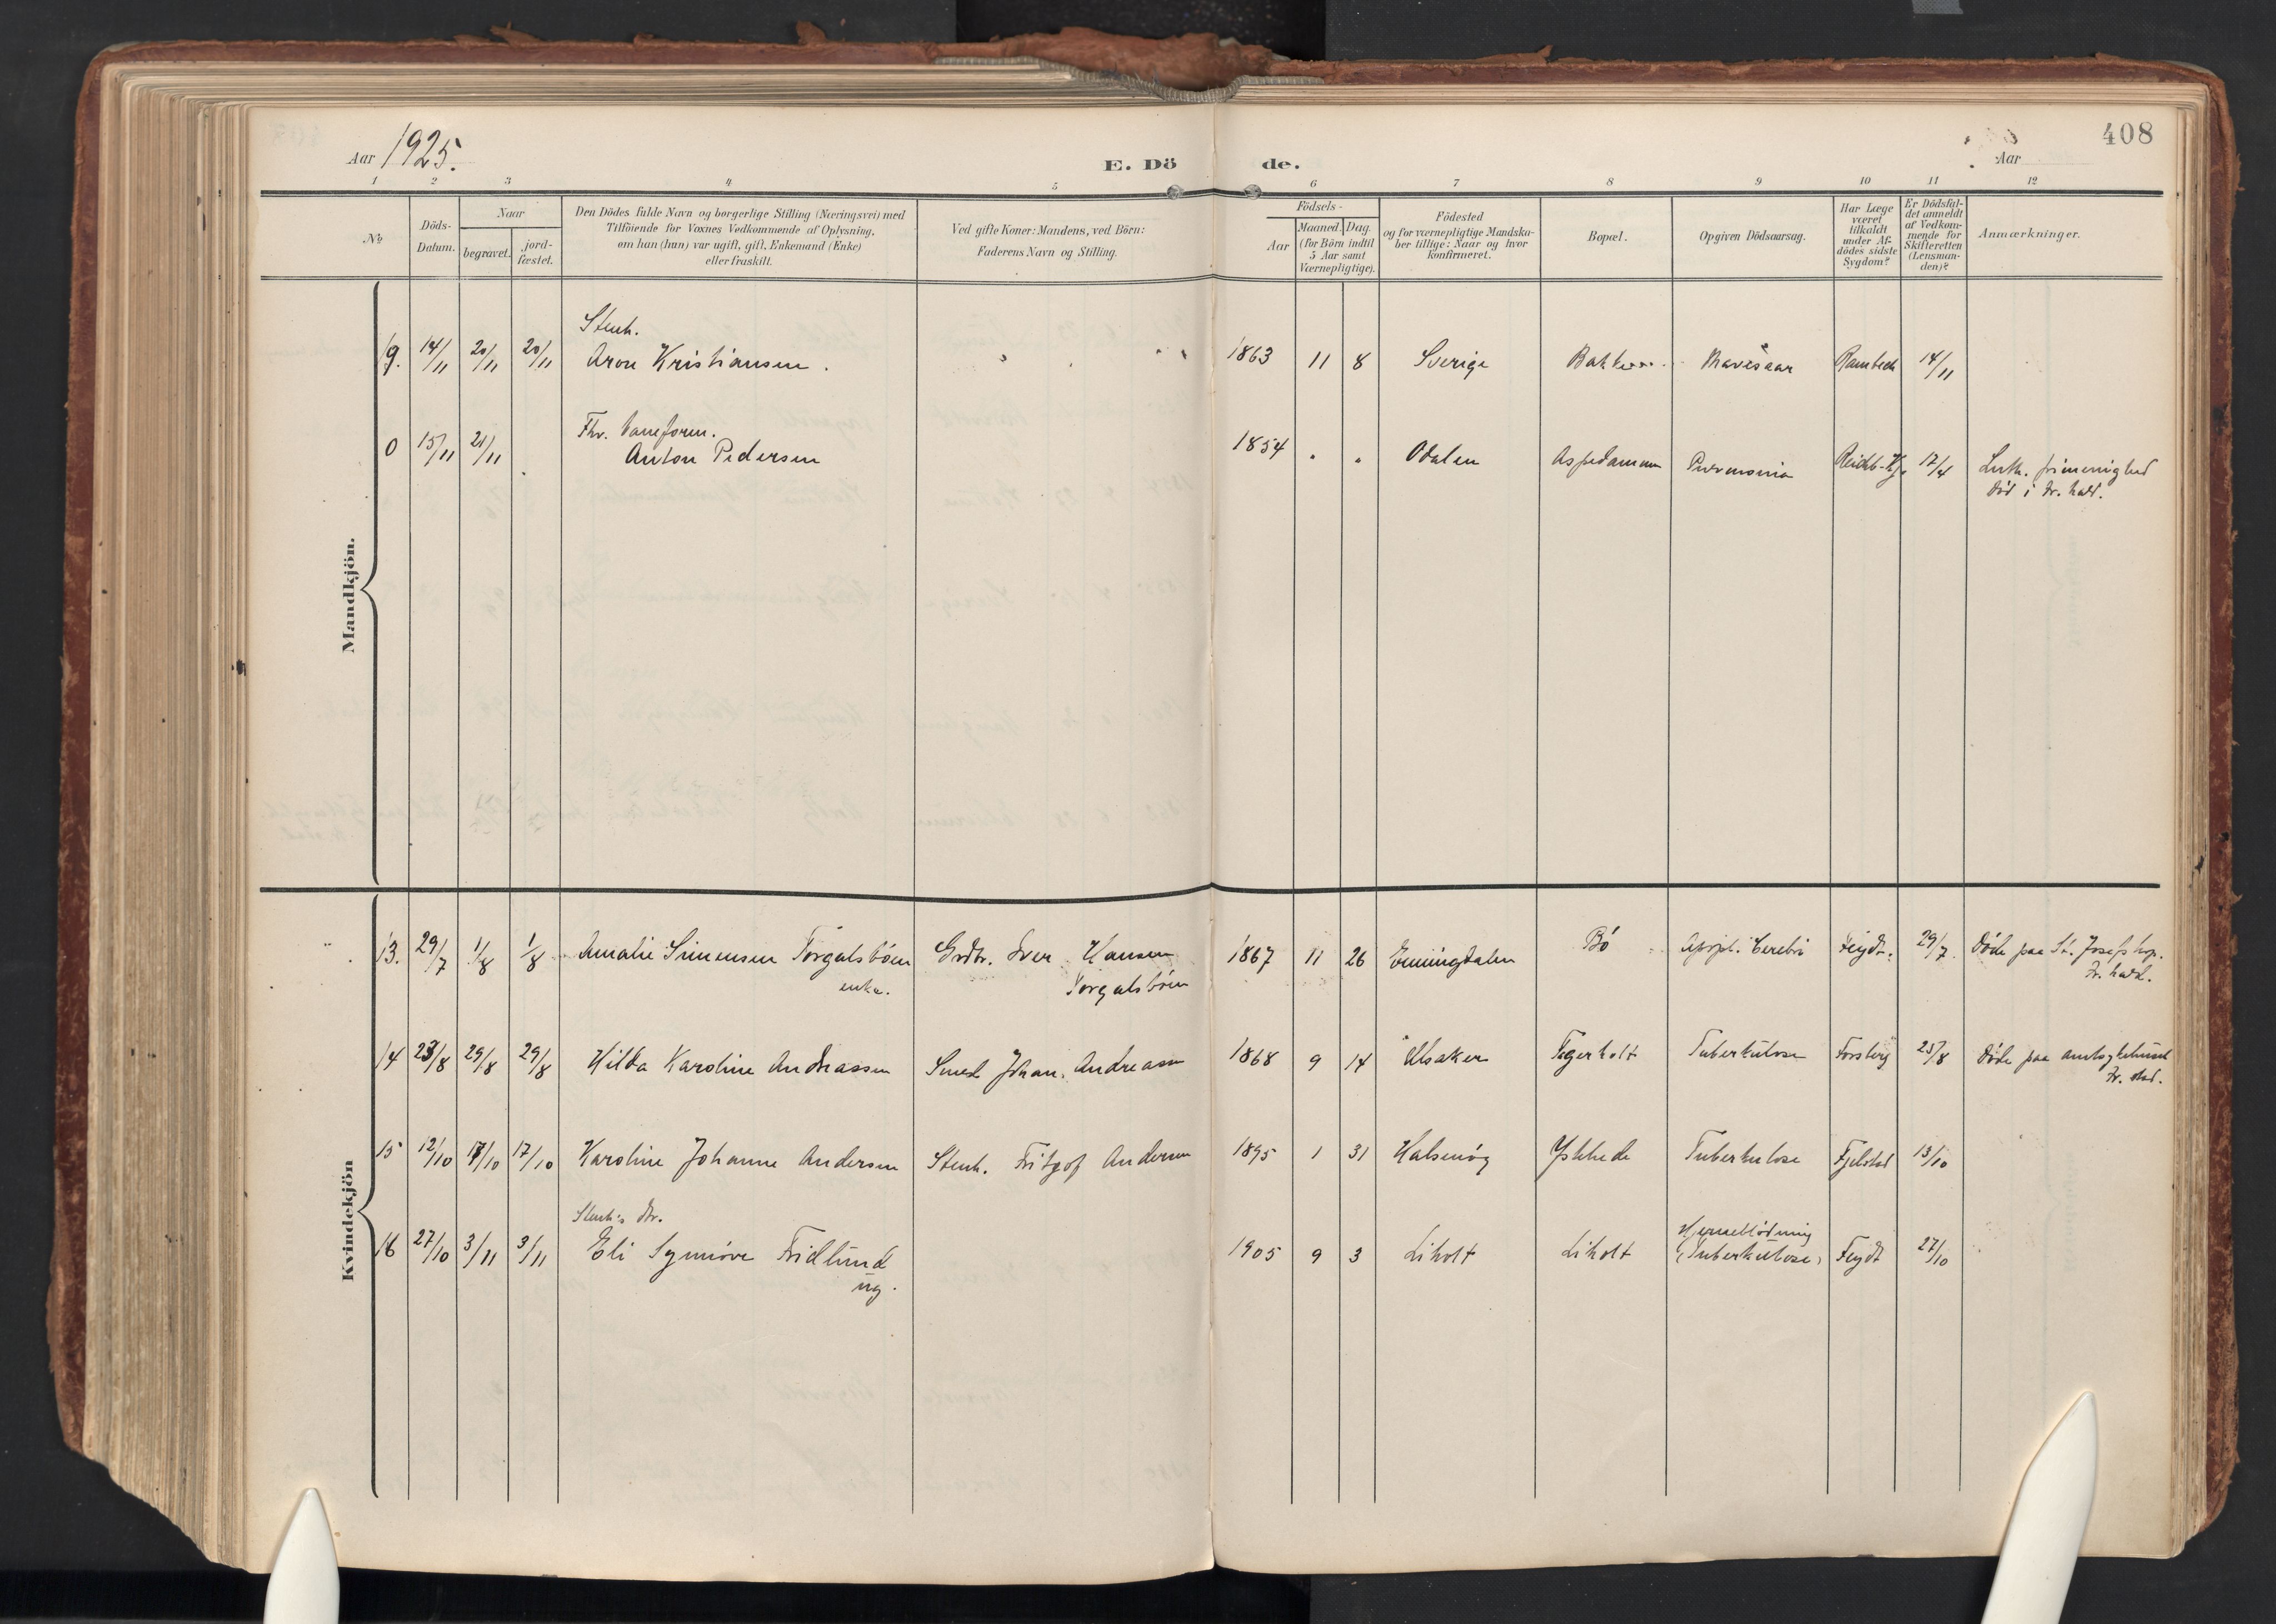 Aar 1925.
E. Dö de.
Aar
408
1 2 3 4 5 6 7 8 9 10 11 12
No
Döds-
Datum.
Naar
begravet.
jord-
fæstet.
Den Dödes fulde Navn og borgerlige Stilling (Næringsvei) med
Tilföiende for Voxnes Vedkommende af Oplysning,
om han (hun) var ugift, gift, Enkemand (Enke)
eller fraskilt.
Ved gifte Koner: Mandens, ved Börn:
Faderens Navn og Stilling.
Födsels-
Aar
Maaned. Dag.
(for Börn indtil
5 Aar samt
Værnepligtige).
Födested
og for værnepligtige Mandska-
ber tillige: Naar og hvor
konfirmeret.
Bopæl.
Opgiven Dödsaarsag.
Har Læge
været
tilkaldt
under Af-
dödes sidste
Sygdom?
Er Dödsfal-
det anmeldt
af Vedkom-
mende for
Skifteretten
(Lensman-
den)?
Anmærkninger.
Mandkjön.
Stenh.
19. 14/11 20/11 20/11 Aron Kristiansen. 1863 11 8 Sverige Bakke Mavesaar 14/11
Fhv.
0 15/11 21/11 Anton Pedersen 1854 " " Odalen Aspedammen Pnevmonia Luth. frimenighed
död i Fr.hald.
Kvindekjön
13. 29/7 1/8 1/8 Amalie Simensen Torgalsböen Grdbr. Iver Hansen 1867 11 26 Enningdalen Bö Apopl. Cerebri Feydt. 29/7. Döde paa St. Josefs hosp.
enke. Torgalsböen Fr.hald.
14 23/8 29/8 29/8 Hilda Karoline Andreassen Smed Johan. Andreassen 1868 9 14 Ulsaker Tegerholt Tuberkulose Forsberg 25/8 Döde paa amtsykehuset
15 12/10 17/10 17/10 Karoline Johanne Andersen Stenh. Fritjof Andersen 1895 1 31 Halsenög Yskhede Tuberkulose Fjelstad 13/10
Stenh's dtr. Hjerneblödning
16 27/10 3/11 3/11 Eli Synnöve Fridlund 1905 9 3 Liholt Liholt (Tuberkulose) Feydt 27/10
ug.